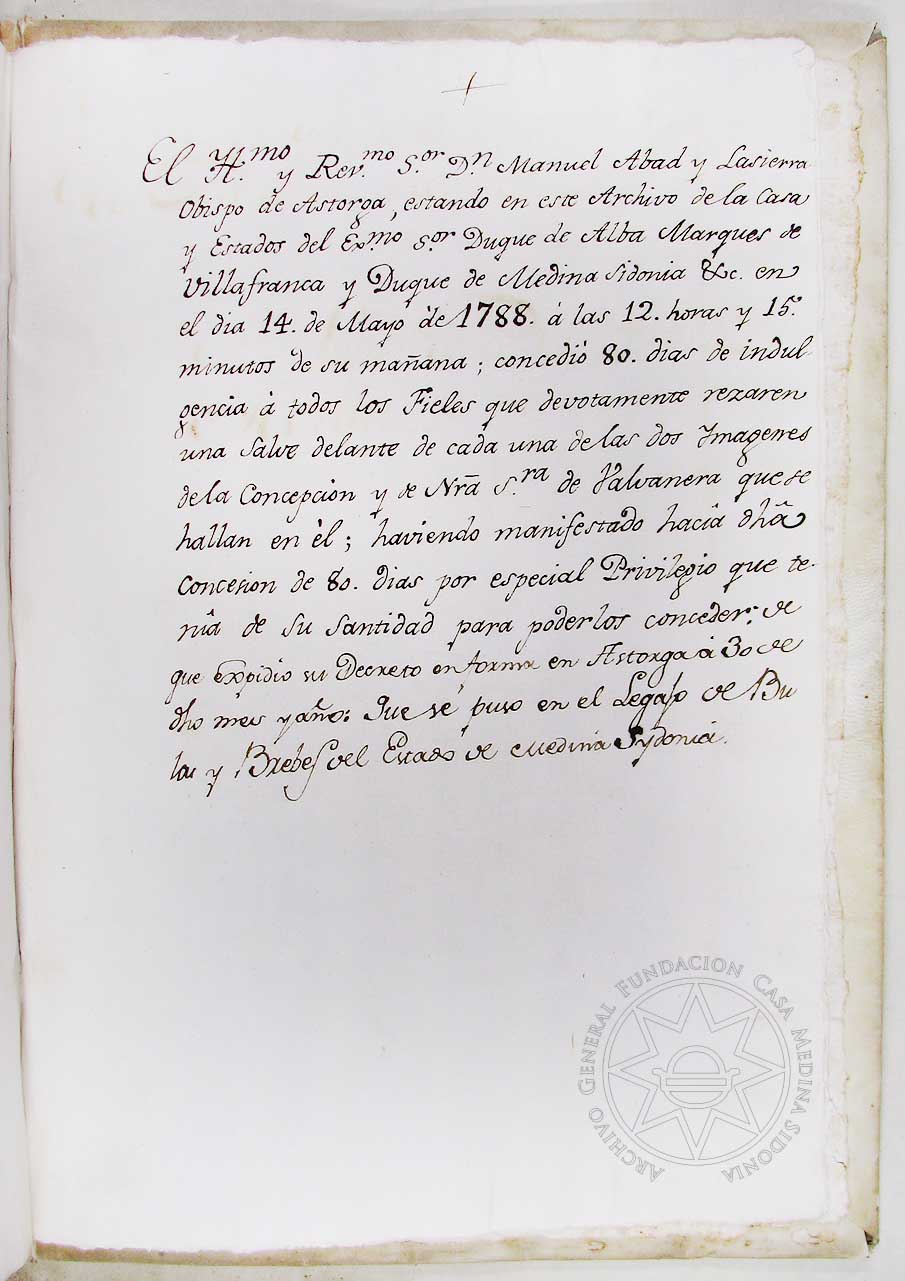 +
El Yll.mo y Rev.mo S.or D.n Manuel Abad y Lasierra
Obispo de Astorga, estando en este Archivo de la Casa
y Estados del Ex.mo S.or Duque de Alba Marques de
Villafranca y Duque de Medina Sidonia &c. en
el dia 14. de Mayo de 1788. á las 12. horas y 15.
minutos de su mañana; concedió 80. dias de indul-
gencia à todos los Fieles que devotamente rezaren
una Salve delante de cada una de las dos Ymagenes
de la Concepcion y de Nrã S.ra de Valvanera que se
hallan en èl; haviendo manifestado hacia dhã
Concesion de 80. dias por especial Privilegio que te-
nia de Su Santidad para poderlos conceder; de
que expidio su Decreto en forma en Astorga à 30 de
dho mes y año: Que se puso en el Legajo de Bu
las y Brebes del Estado de Medina Sydonia.
ARCHIVO GENERAL FUNDACION CASA MEDINA SIDONIA